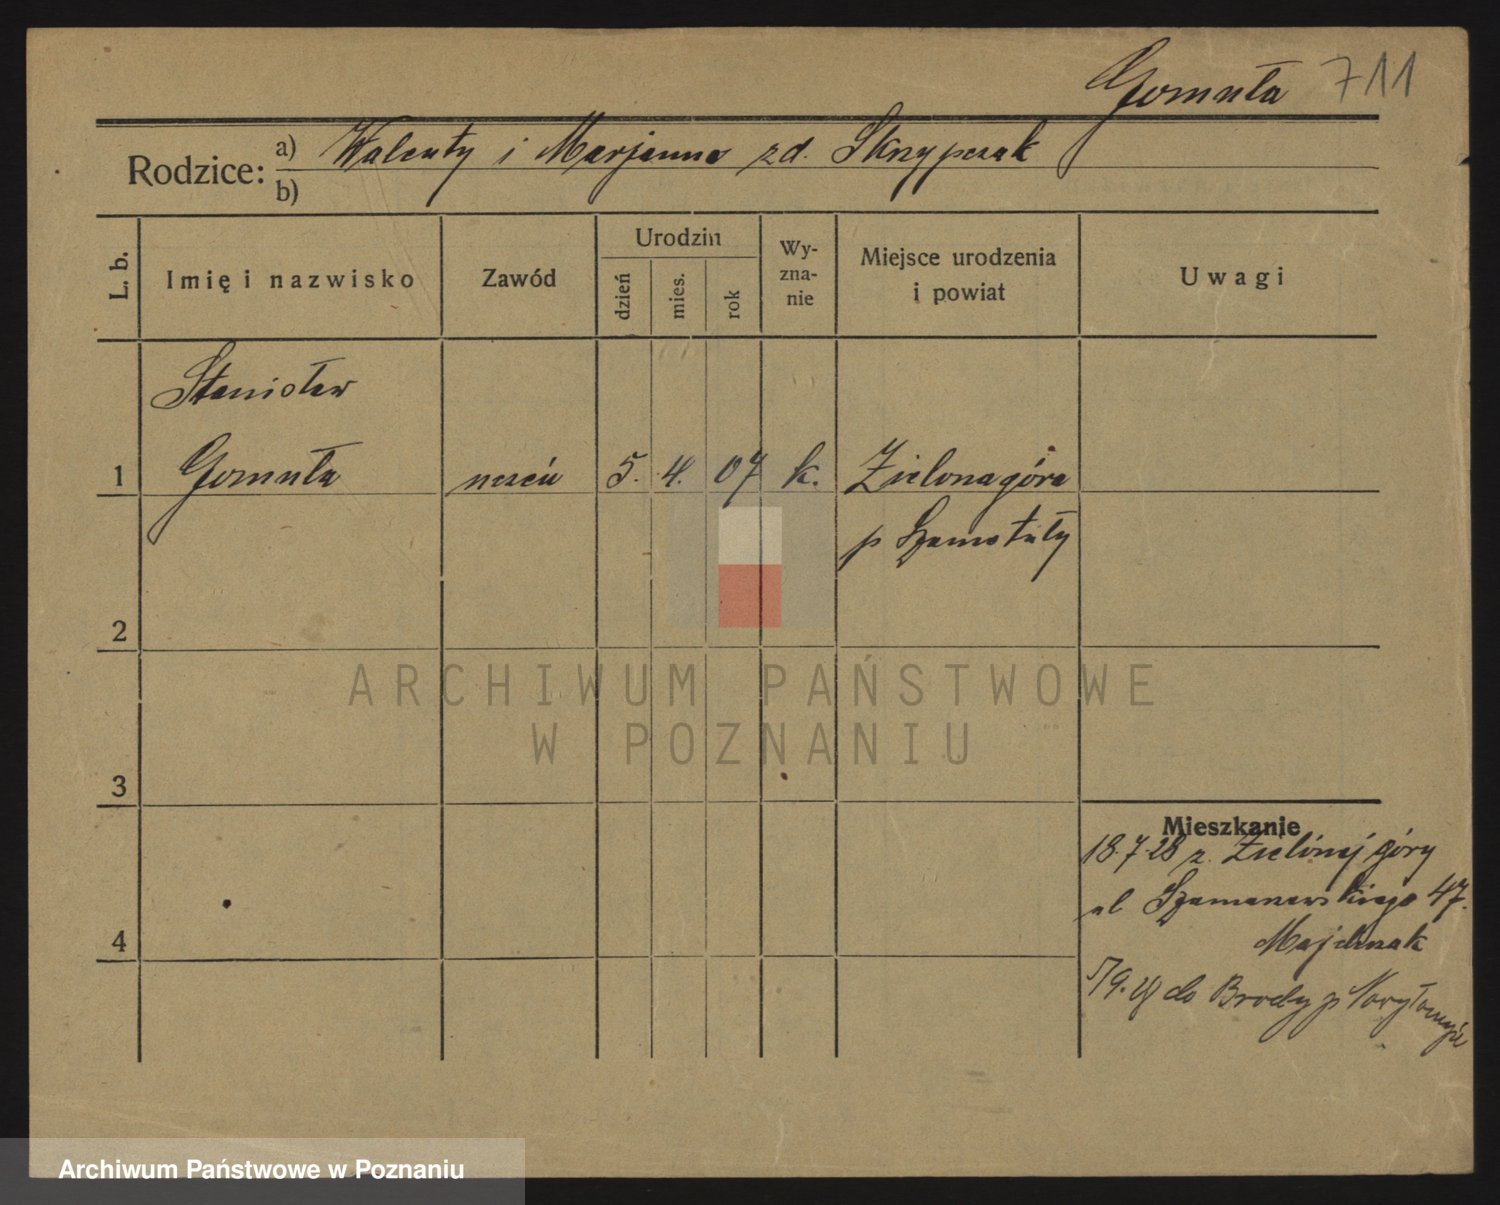 Gomuła 711
Rodzice: a) Walenty i Marjanna zd. Skrzypczak
b)
L. b.
Imię i nazwisko
Zawód
Urodzin
dzień
mies.
rok
Wy-
zna-
nie
Miejsce urodzenia
i powiat
Uwagi
Stanisław
1 Gomuła uczeń 5. 4. 07 k. Zielonagóra
p Szamotuły
2
3
4
Mieszkanie
18.7.28 z Zielonej góry
ul Szamarzewskiego 47.
Majchrzak
do Brody p Nowytomyśl
ARCHIWUM PAŃSTWOWE
W POZNANIU
Archiwum Państwowe w Poznaniu